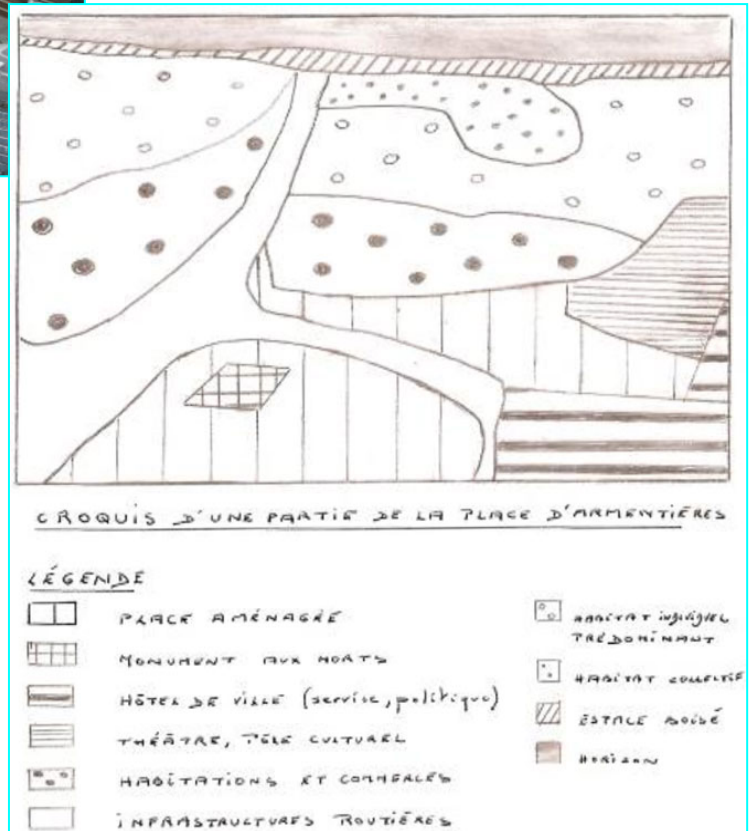 CROQUIS D'UNE PARTIE DE LA PLACE D'ARMENTIÈRES
LÉGENDE
PLACE AMÉNAGÉE
MONUMENT AUX MORTS
HÔTEL DE VILLE (service, politique)
THÉÂTRE, PÔLE CULTUREL
HABITATIONS ET COMMERCES
INFRASTRUCTURES ROUTIÈRES
HABITAT individuel
PRÉDOMINANT
HABITAT COLLECTIF
ESPACE BOISÉ
HORIZON